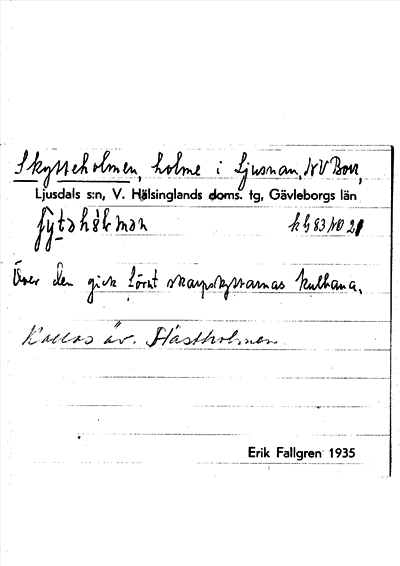 Skytteholmen, holme i Ljusnan, NV Born,
Ljusdals s:n, V. Hälsinglands doms. tg, Gävleborgs län
Över den gick förut skarpskyttarnas kulbana.
Kallas äv. Hästholmen
Erik Fallgren 1935